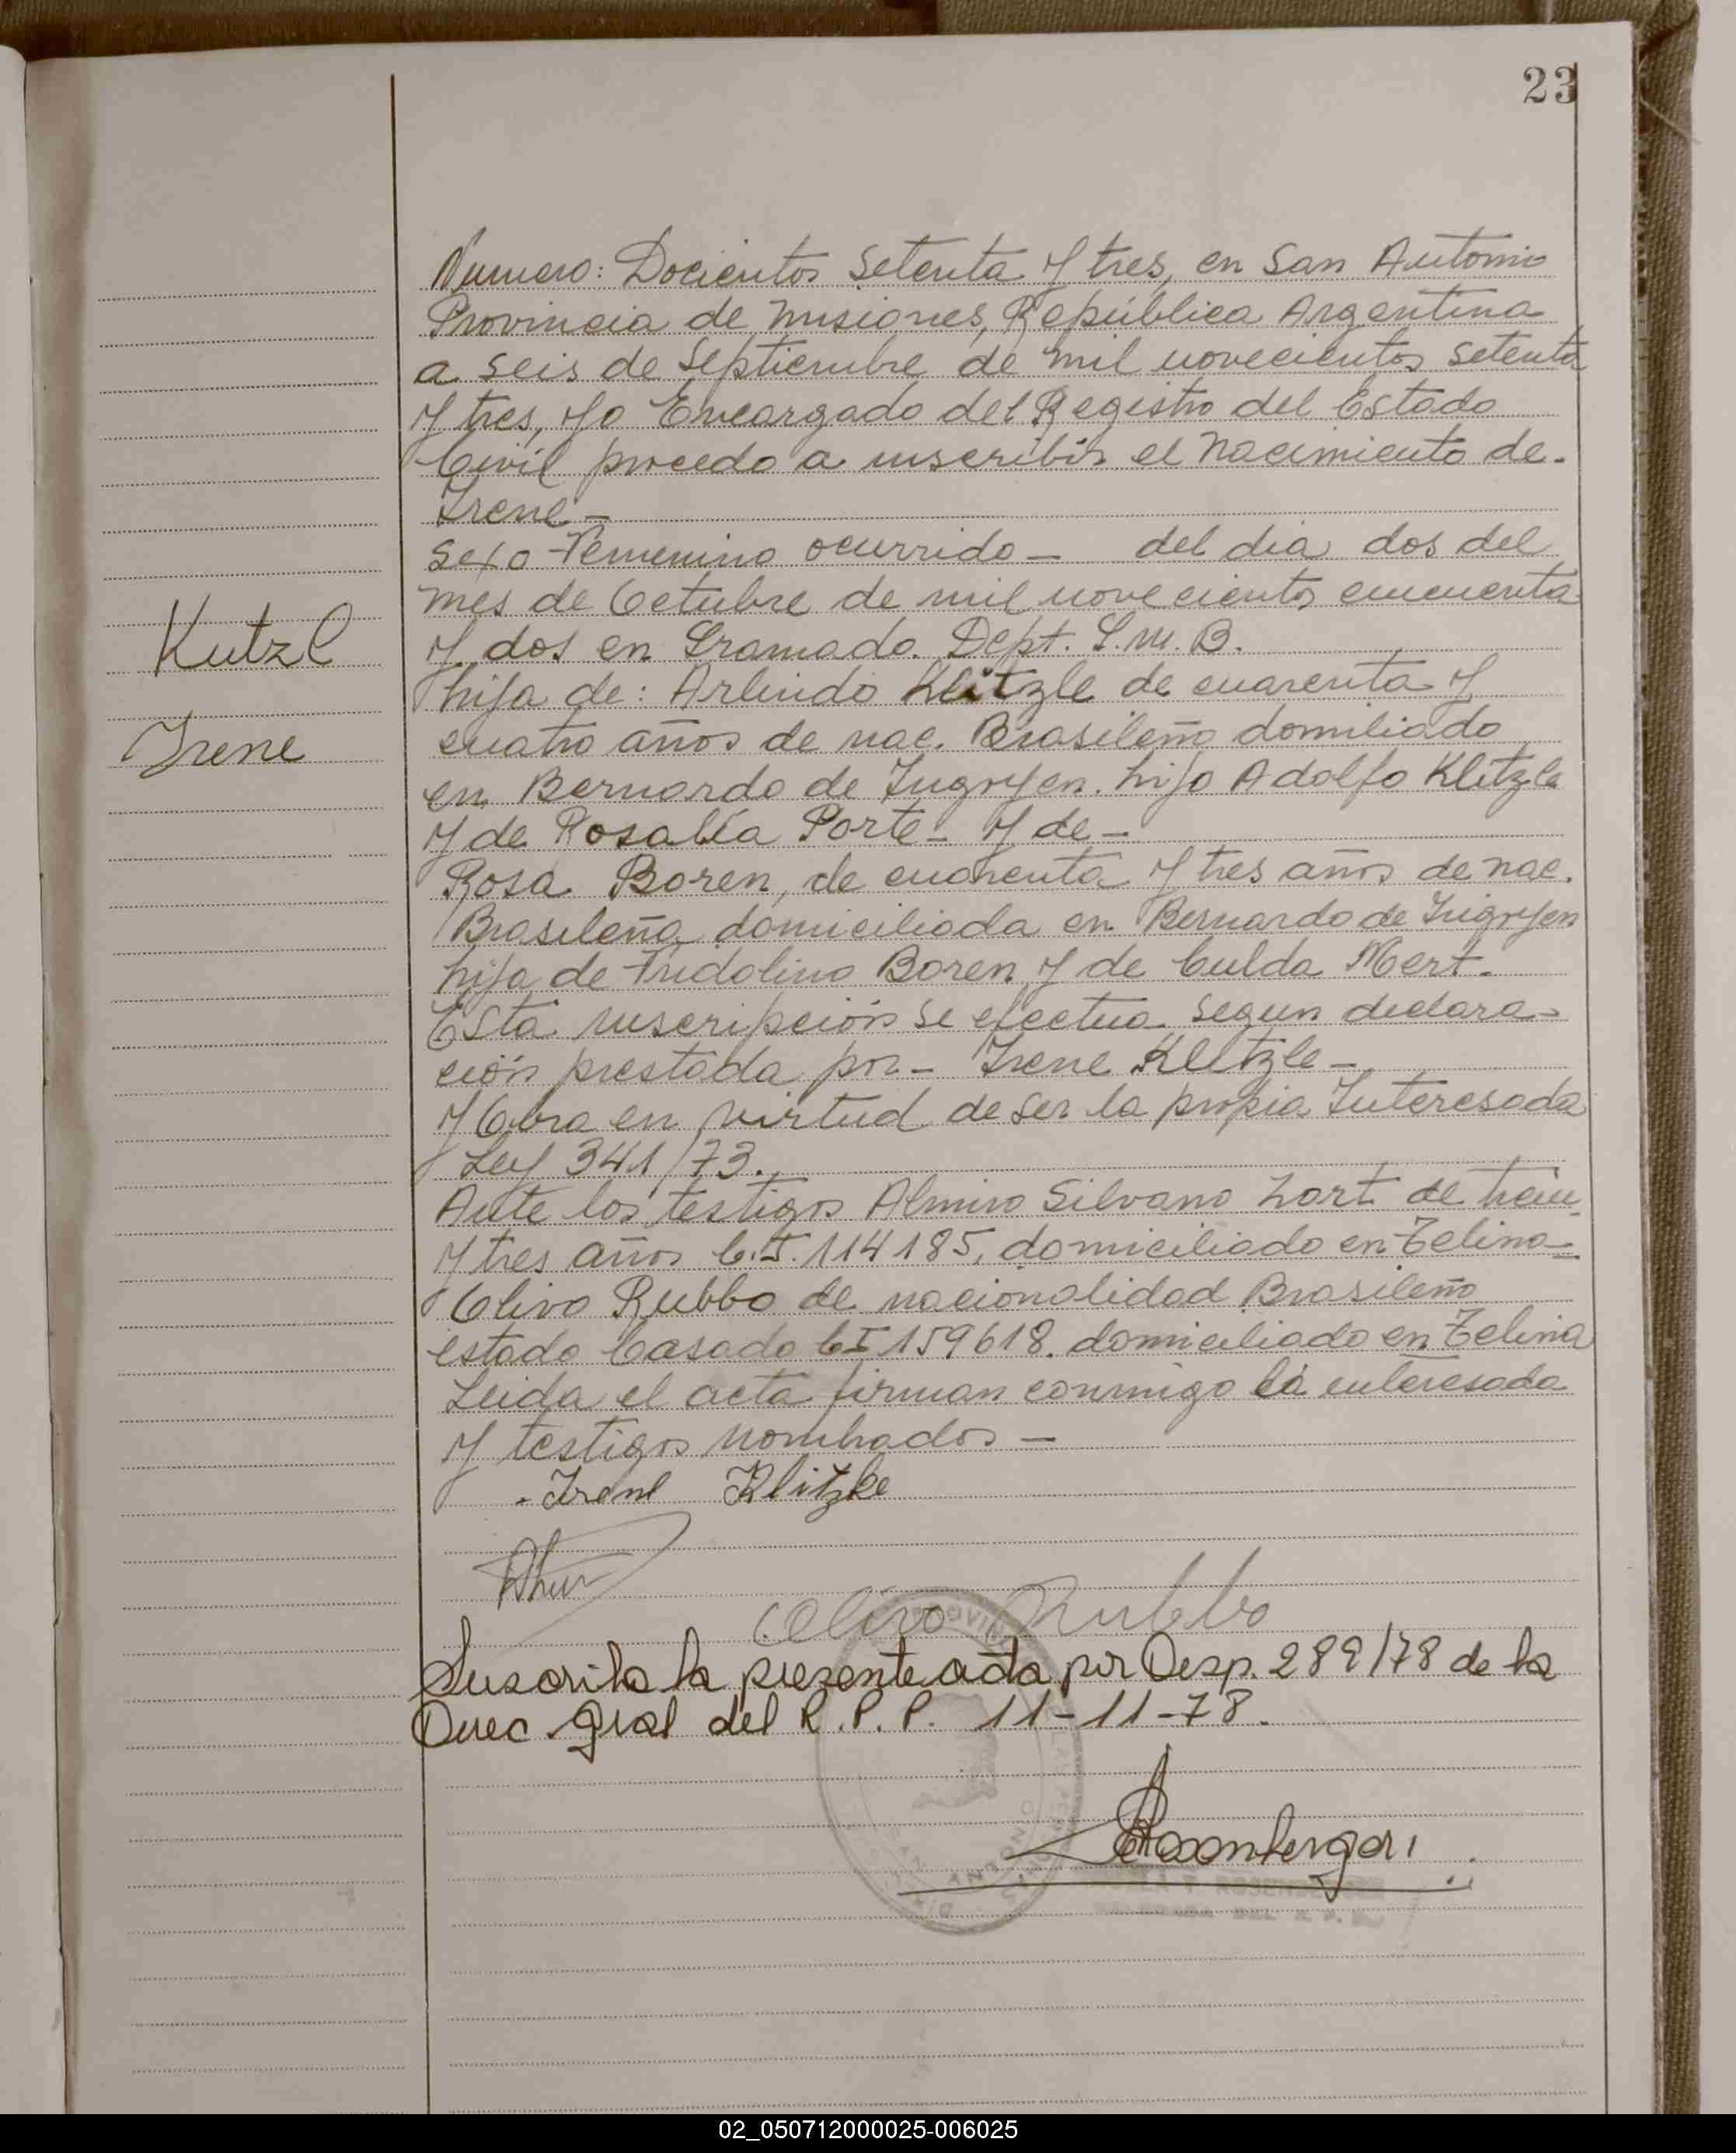 23
Numero: Docientos Setenta y tres, en San Antonio
Provincia de Misiones, República Argentina
a seis de Septiembre de mil novecientos setenta
y tres, yo Encargado del Registro del Estado
Civil procedo a inscribir el nacimiento de.
Irene –
sexo Femenino ocurrido – del dia dos del
mes de Octubre de mil novecientos cincuenta
y dos en Gramado. Dept. G.M.B.
hija de: Arlindo Klitzle de cuarenta y
cuatro años de nac. Brasileño domiliado
en Bernardo de Yrigoyen. hijo Adolfo Klitzle
y de Rosalía Porte – y de –
Rosa Boren, de cuarenta y tres años de nac.
Brasileña domiciliada en Bernardo de Irigoyen
hija de Fridolino Boren y de Culda Mert.
Esta inscripción se efectua segun declara-
ción prestada por – Irene Klitzle –
y Obra en virtud de ser la propia Interesada
Ley 341/73.
Ante los testigos Almiro Silvano Zort de trein
y tres años C.I. 114185, domiciliado en Celina –
Olivo Rubbo de nacionalidad Brasileño
estado Casado CI 159618. domiciliado en Celina
Leida el acta firman conmigo la interesada
y testigos nombrados –
Kutzl
Irene
Irene Klitzke
Olivo Rubbo
Suscrita la presente acta por Disp. 289/78 de la
Direc. Gral del R.P.P. 11-11-78.
02_050712000025-006025